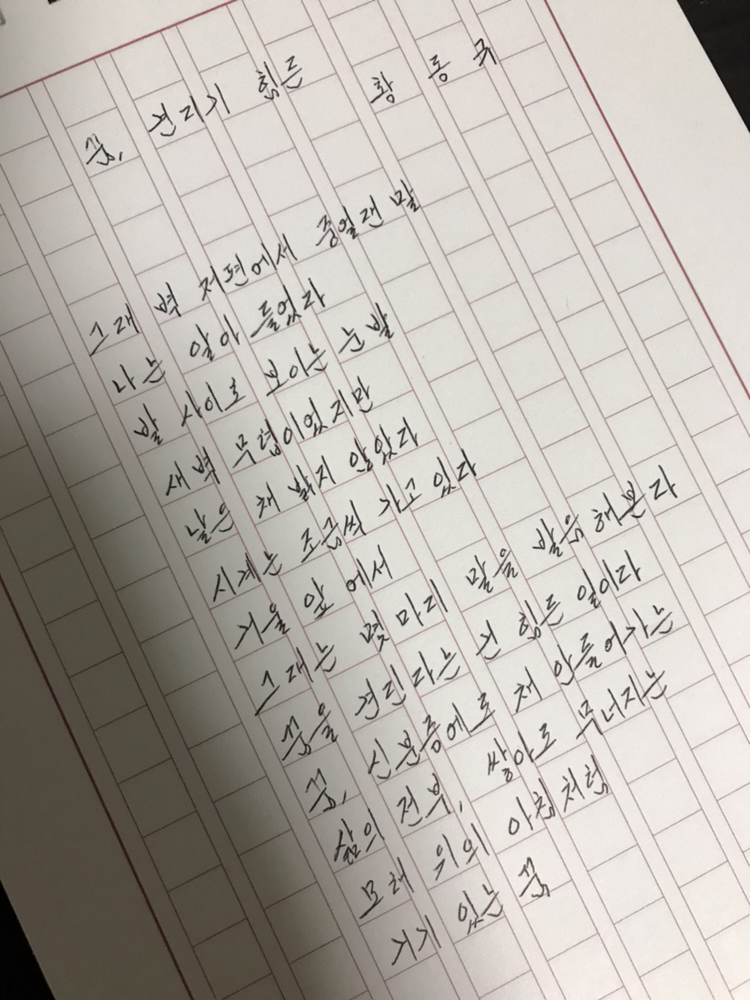 꿈, 견디기 힘든 황동규
그대 벽 저편에서 중얼댄 말
나는 알아 들었다
발 사이로 보이는 눈발
새벽 무렵이었지만
날은 채 밝지 않았다
시계는 조금씩 가고 있다
거울 앞에서
그대는 몇 마디 말을 발음해본다
꿈을 견딘다는 건 힘든 일이다
꿈, 신분증에로 채 안들어가는
삶의 전부, 쌓아도 무너지는
모래 위의 아침처럼
거기 있는 꿈